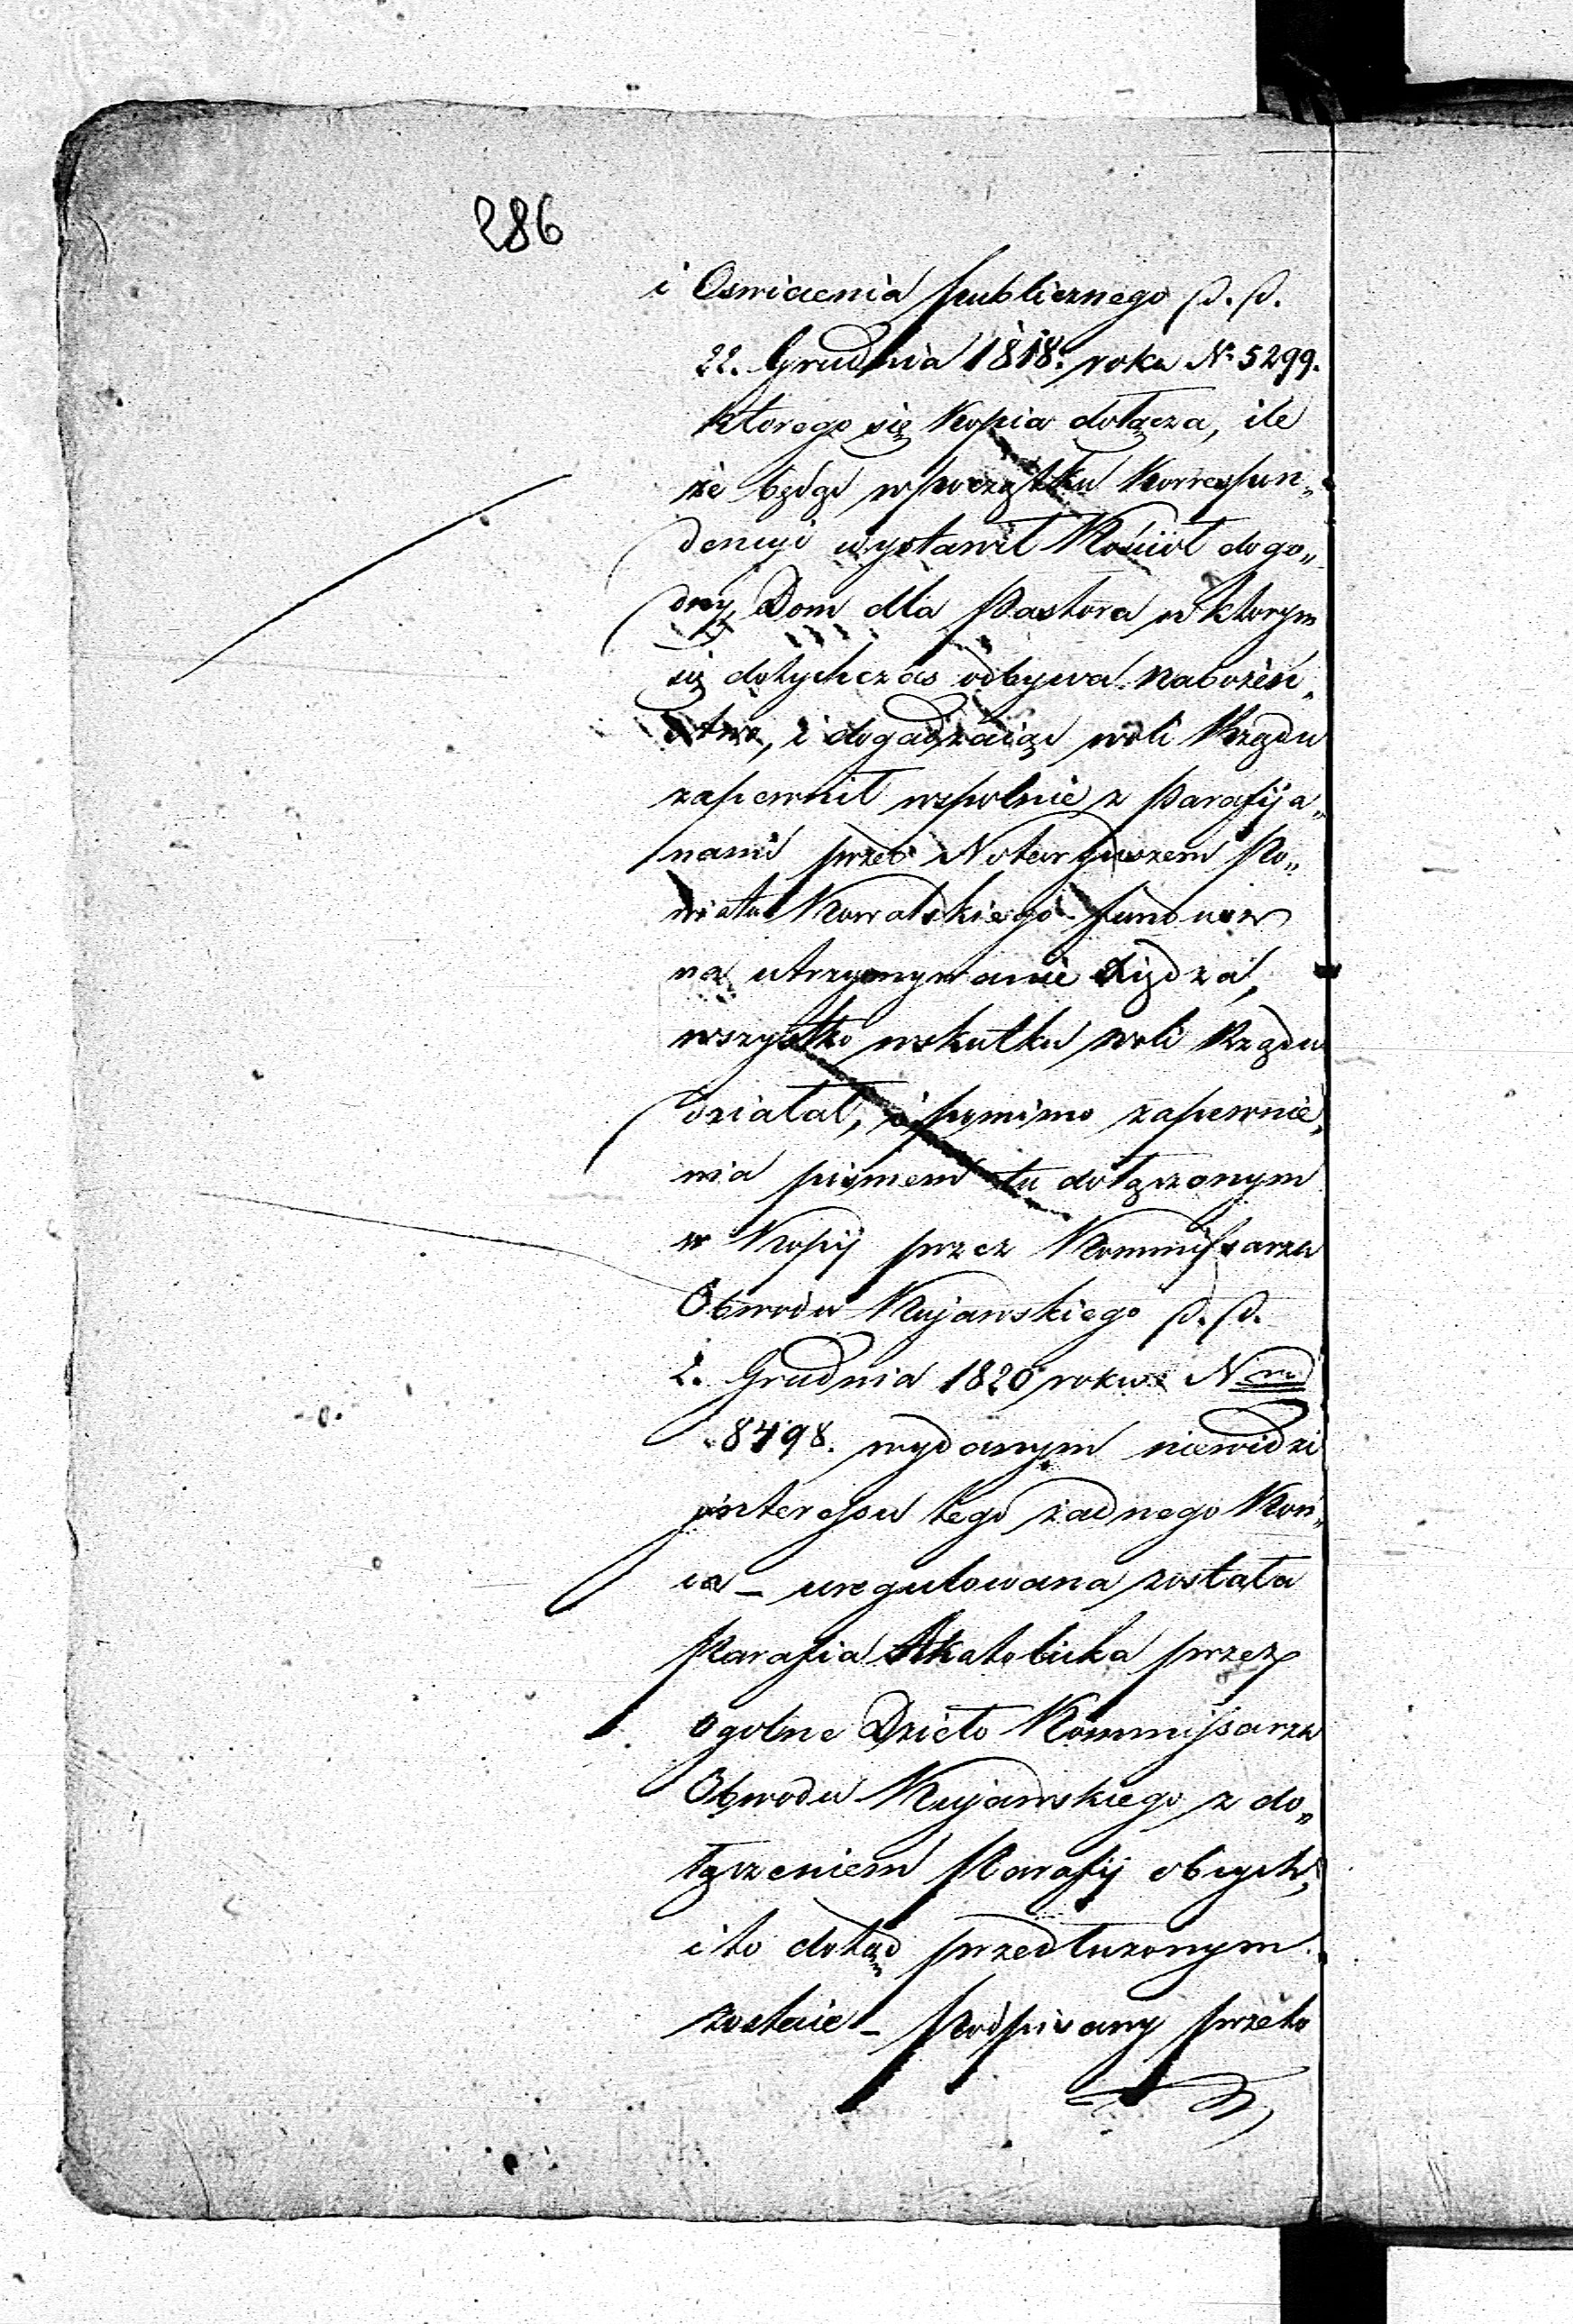 286
i Oswiecenia publicznego p. p.
22. Grudnia 1818. roku N. 5299.
ktorego się Kopia dołącza, ile
że będąc w początku Korrespon„
dencyi wystawił Kościoł dogo„
dny, Dom dla Pastora w ktorym
się dotychczas odbywa Nabożeń„
stwo, i dogadzaiąc woli Rządu
zapewnił wspolnie z Parafija„
nami przed Notaryuszem Po„
wiatu Kowalskiego fundusz
na utrzymywanie Xiędza,
wszystko wskutku woli Rządu
działał, i pomimo zapewnie„
nia pismem tu dołączonym
w Kopij przez Kommissarza
Obwodu Kujawskiego p. p.
2. Grudnia 1820 roku Nro
8498. wydanym niewidzi
interessu tego żadnego Koń„
ca – uregulowana została
Parafia Akatolicka przez
ogolne Dzieło Kommissarza
Obwodu Kujawskiego z do„
łączeniem Parafij obcych,
i to dotąd przedłużonym
zostaie – Podpisany przeto